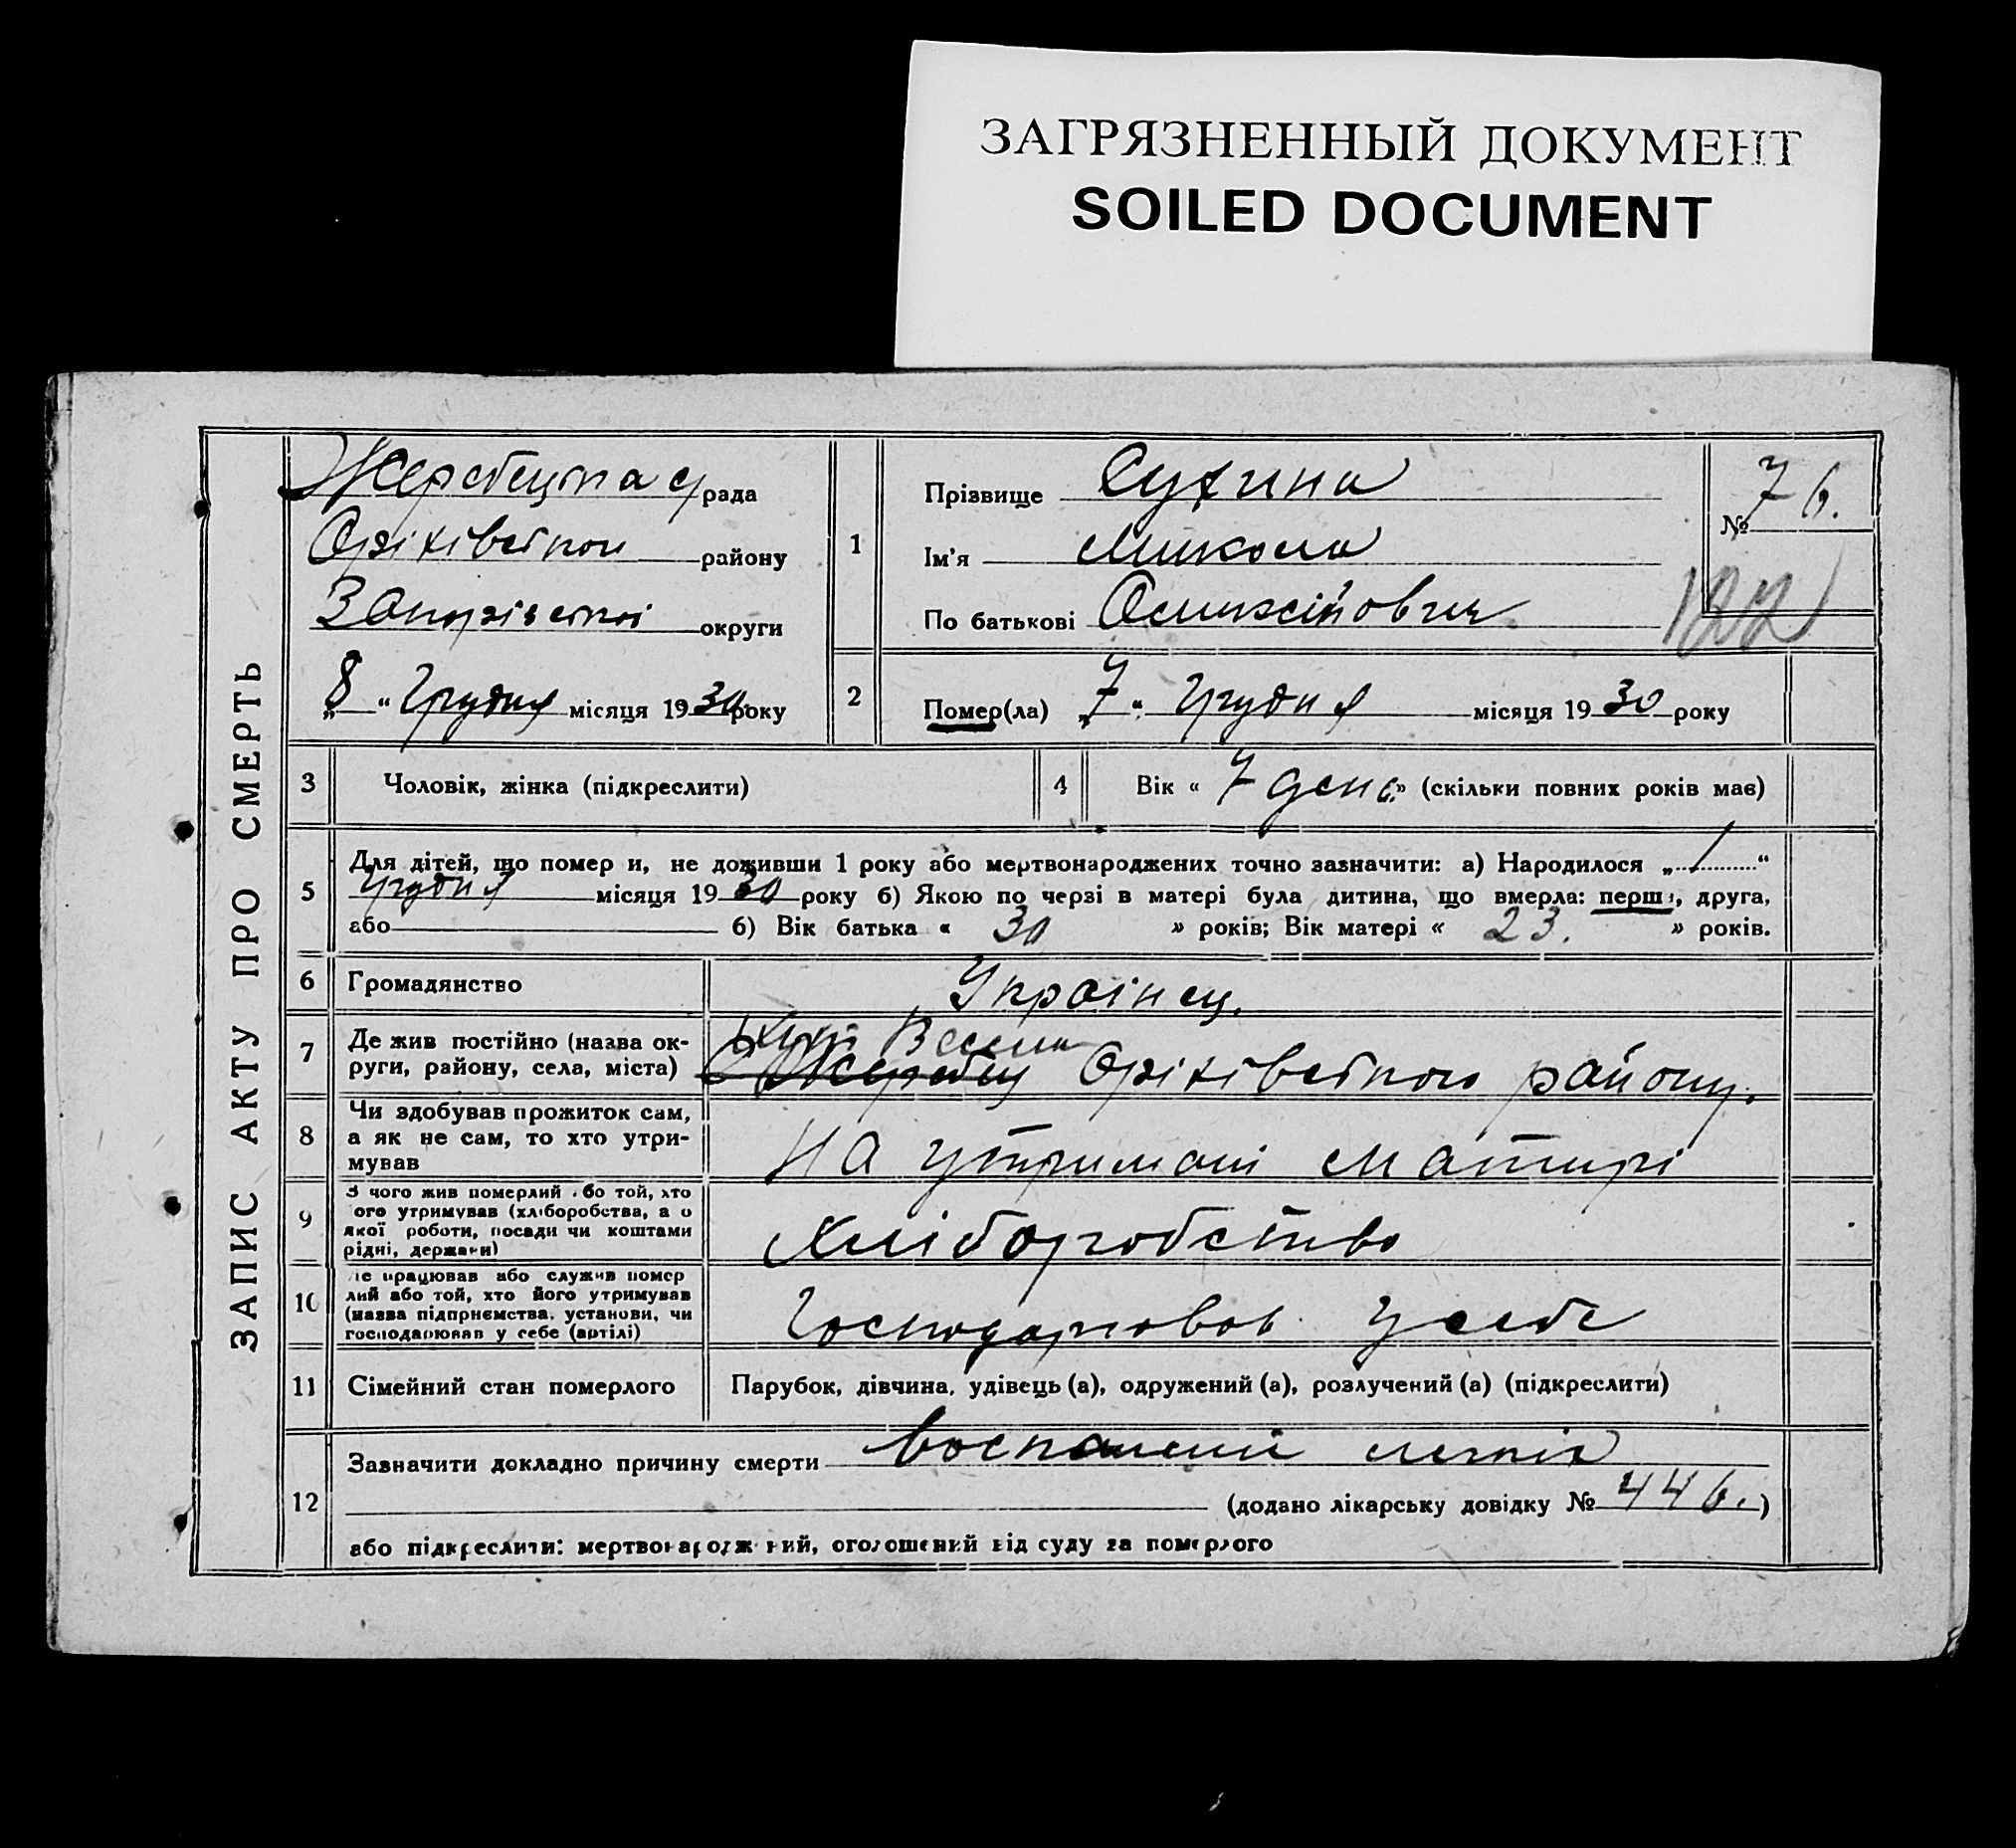 ЗАГРЯЗНЕННЫЙ ДОКУМЕНТ
SOILED DOCUMENT
ЗАПИС АКТУ ПРО СМЕРТЬ
Жеребецька с/рада
Оріхівської району
Запорізької округи
„8“ Грудня місяця 1930 року
1
Прізвище Сухина
Ім'я Микола
По батькові
№ 76.
122
2
Помер(ла) „7“ Грудня місяця 1930 року
3
Чоловік, жінка (підкреслити)
4
Вік « 7 день » (скільки повних років має)
5
Для дітей, що помер и, не доживши 1 року або мертвонароджених точно зазначити: а) Народилося „1“
Грудня місяця 1930 року б) Якою по черзі в матері була дитина, що вмерла: перша, друга,
або б) Вік батька « 30 » років; Вік матері « 23. » років.
6
Громадянство
Украінец.
7
Де жив постійно (назва округи, району, села, міста)
хут Весела
с Жеребец Оріхівського району.
8
Чи здобував прожиток сам,
а як не сам, то хто утри-
мував
На утримані матирі
9
З чого жив померлий або той, хто
його утримував (хліборобства, а о
якої роботи, посади чи коштами
рідні, держави)
Хліборобство
10
Де працював або служив помер
лий або той, хто його утримував
(назва підприємства, установи, чи
господарював у себе (артілі)
Господарював у себе
11
Сімейний стан померлого
Парубок, дівчина, удівець (а), одружений (а), розлучений (а) (підкреслити)
12
Зазначити докладно причину смерти Воспалений легкіх
(додано лікарську довідку № 446.)
або підкреслити: мертвонароджений, оголошений від суду за померлого